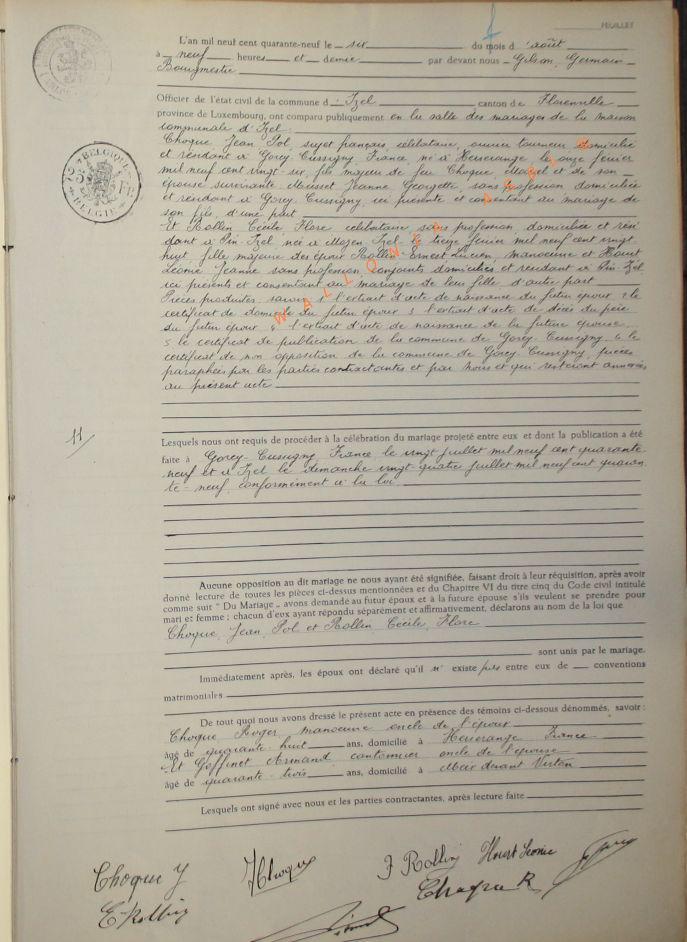 FEUILLET
L'an mil neuf cent quarante-neuf le six du mois d'août
à neuf heures et demie par devant nous Gilson, Germain
Bourgmestre
Officier de l'état civil de la commune d'Izel canton de Florenville
province de Luxembourg, ont comparu publiquement en la salle des mariages de la maison
communale d'Izel.
Choque, Jean Pol, sujet français, célibataire, ouvrier tourneur domicilié
et résidant à Gorcy-Cussigny, France, né à Herserange, le onze février
mil neuf cent vingt-six, fils majeur de feu Choque, Marcel et de son
épouse survivante Musset Jeanne Georgette, sans profession, domiciliée
et résidant à Gorcy Cussigny, ici présente et consentant au mariage de
son fils, d'une part
Et Rollin Cécile, Flore célibataire, sans profession, domiciliée et rési
dant à Pin-Izel, née à Moyen, Izel, le treize février mil neuf cent vingt
huit, fille majeure des époux Rollin Ernest Lucien, manoeuvre et Hourt
Léonie Jeanne sans profession, conjoints domiciliés et résidant à Pin-Izel
ici présents et consentant au mariage de leur fille, d'autre part.
Pièces produites, savoir: 1 l'extrait d'acte de naissance du futur époux 2 le
certificat de domicile du futur époux 3 l'extrait d'acte de décès du père
du futur époux 4 l'extrait d'acte de naissance de la future épouse
5 le certificat de publication de la commune de Gorcy-Cussigny 6 le
certificat de non opposition de la commune de Gorcy-Cussigny, pièces
paraphées par les parties contractantes et par Nous et qui resteront annexées
au présent acte
WALLONIA ASBL
BELGIQUE
BELGIË
11
Lesquels nous ont requis de procéder à la célébration du mariage projeté entre eux et dont la publication a été
faite à Gorcy-Cussigny, France le vingt juillet mil neuf cent quarante
neuf et à Izel le dimanche vingt-quatre juillet mil neuf cent quaran
te-neuf, conformément à la loi.
Aucune opposition au dit mariage ne nous ayant été signifiée, faisant droit à leur réquisition, après avoir
donné lecture de toutes les pièces ci-dessus mentionnées et du Chapitre VI du titre cinq du Code civil intitulé
comme suit " Du Mariage „ avons demandé au futur époux et à la future épouse s'ils veulent se prendre pour
mari et femme ; chacun d'eux ayant répondu séparément et affirmativement, déclarons au nom de la loi que
Choque, Jean, Pol et Rollin Cécile, Flore
sont unis par le mariage.
Immédiatement après, les époux ont déclaré qu'il n'existe pas entre eux de conventions
matrimoniales
De tout quoi nous avons dressé le présent acte en présence des témoins ci-dessous dénommés, savoir :
Choque Roger, manoeuvre oncle de l'époux
âgé de quarante-huit ans, domicilié à Herserange France
Et Goffinet Armand cantonnier oncle de l'épouse
âgé de quarante-trois ans, domicilié à Meix devant Virton
Lesquels ont signé avec nous et les parties contractantes, après lecture faite
Choque J
E Rollin
J Choque
Rollin
Hourt Léonie
Choque R